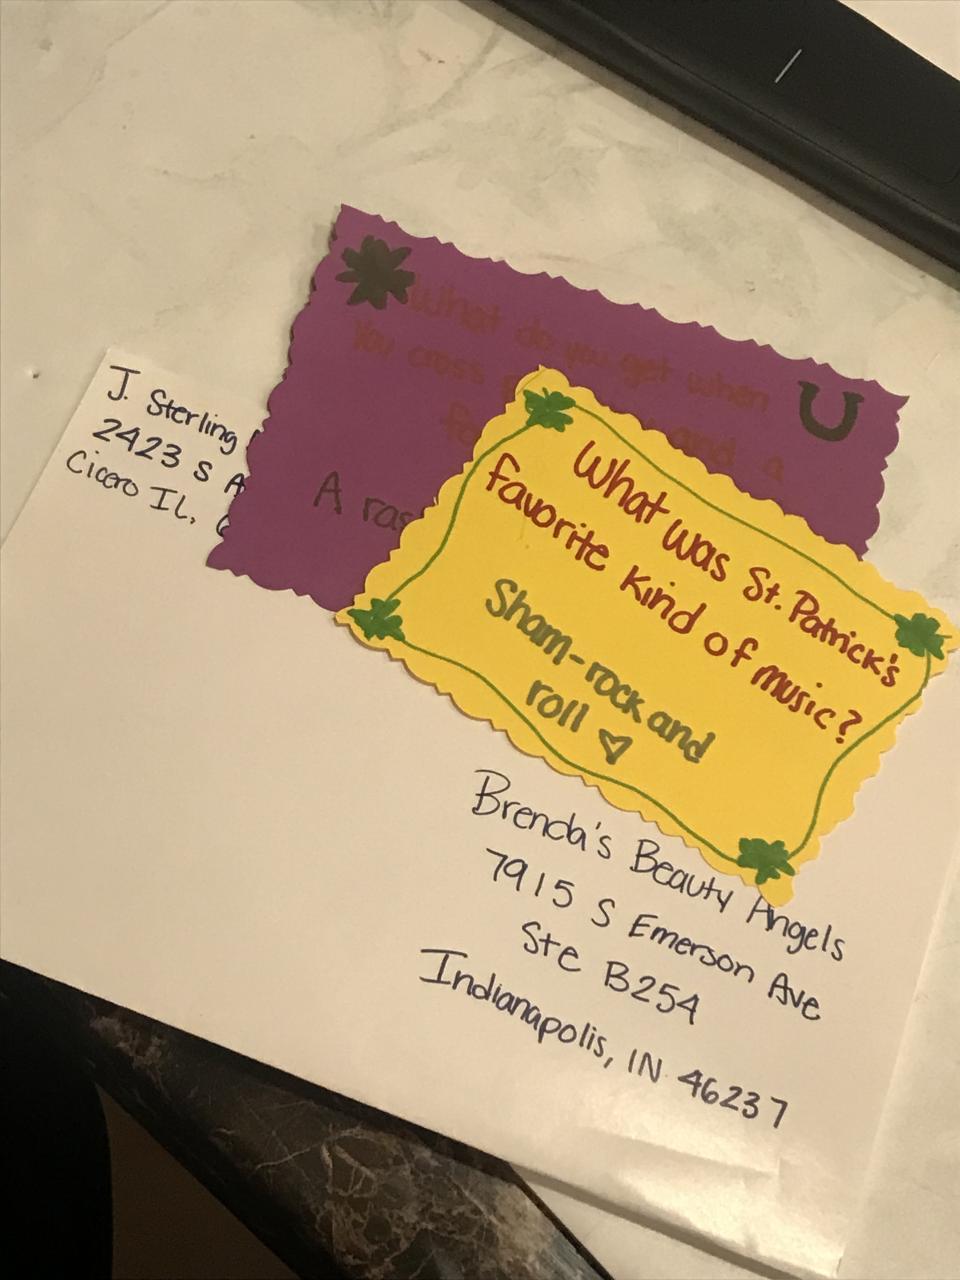 J. Sterling
2423 S A
Cicero IL.
What do you get when
You cross
and a
A ras
What was St. Patrick's
favorite kind of music?
Sham-rock and
roll ♡
Brenda's Beauty Angels
7915 S Emerson Ave
Ste B254
Indianapolis, IN 46237